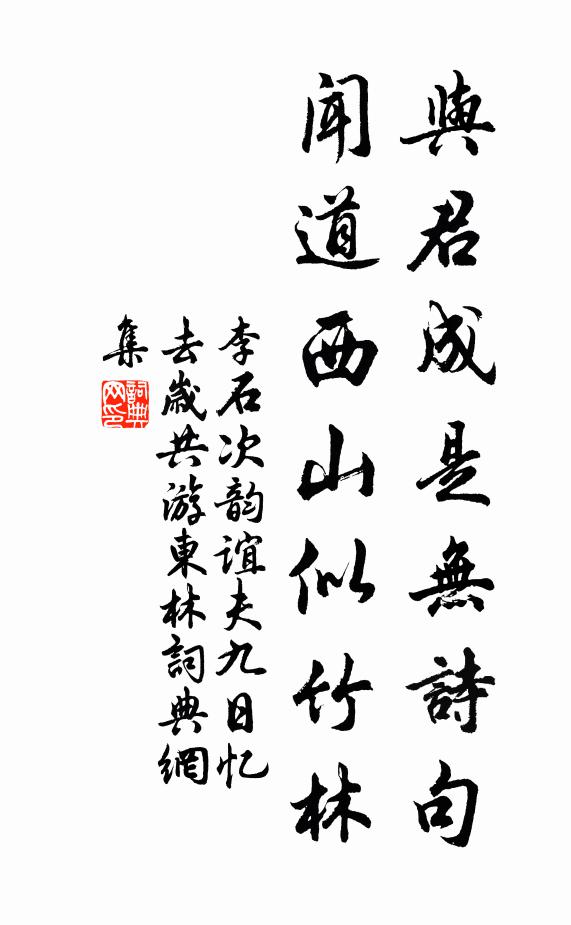 與君成是無詩句
聞道西山似竹林
李石次韵誼夫九日忆
去歲共游東林詞典網
集
詞典
网印